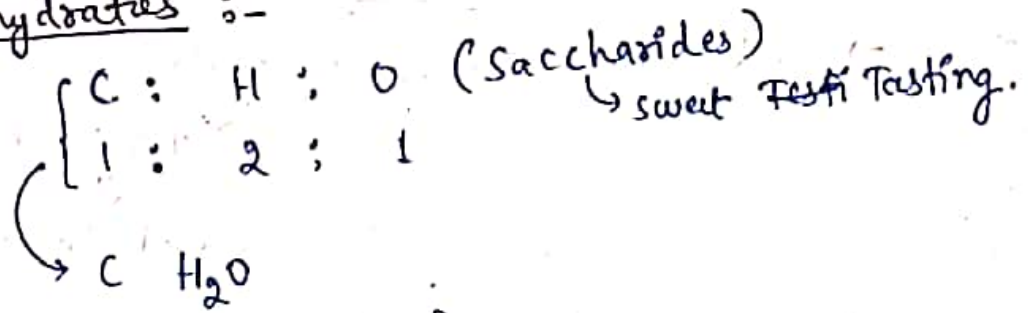 ydrates :-
C : H : O (Saccharides)
↳ sweet Testi Tasting.
1 : 2 : 1
→ C H₂O